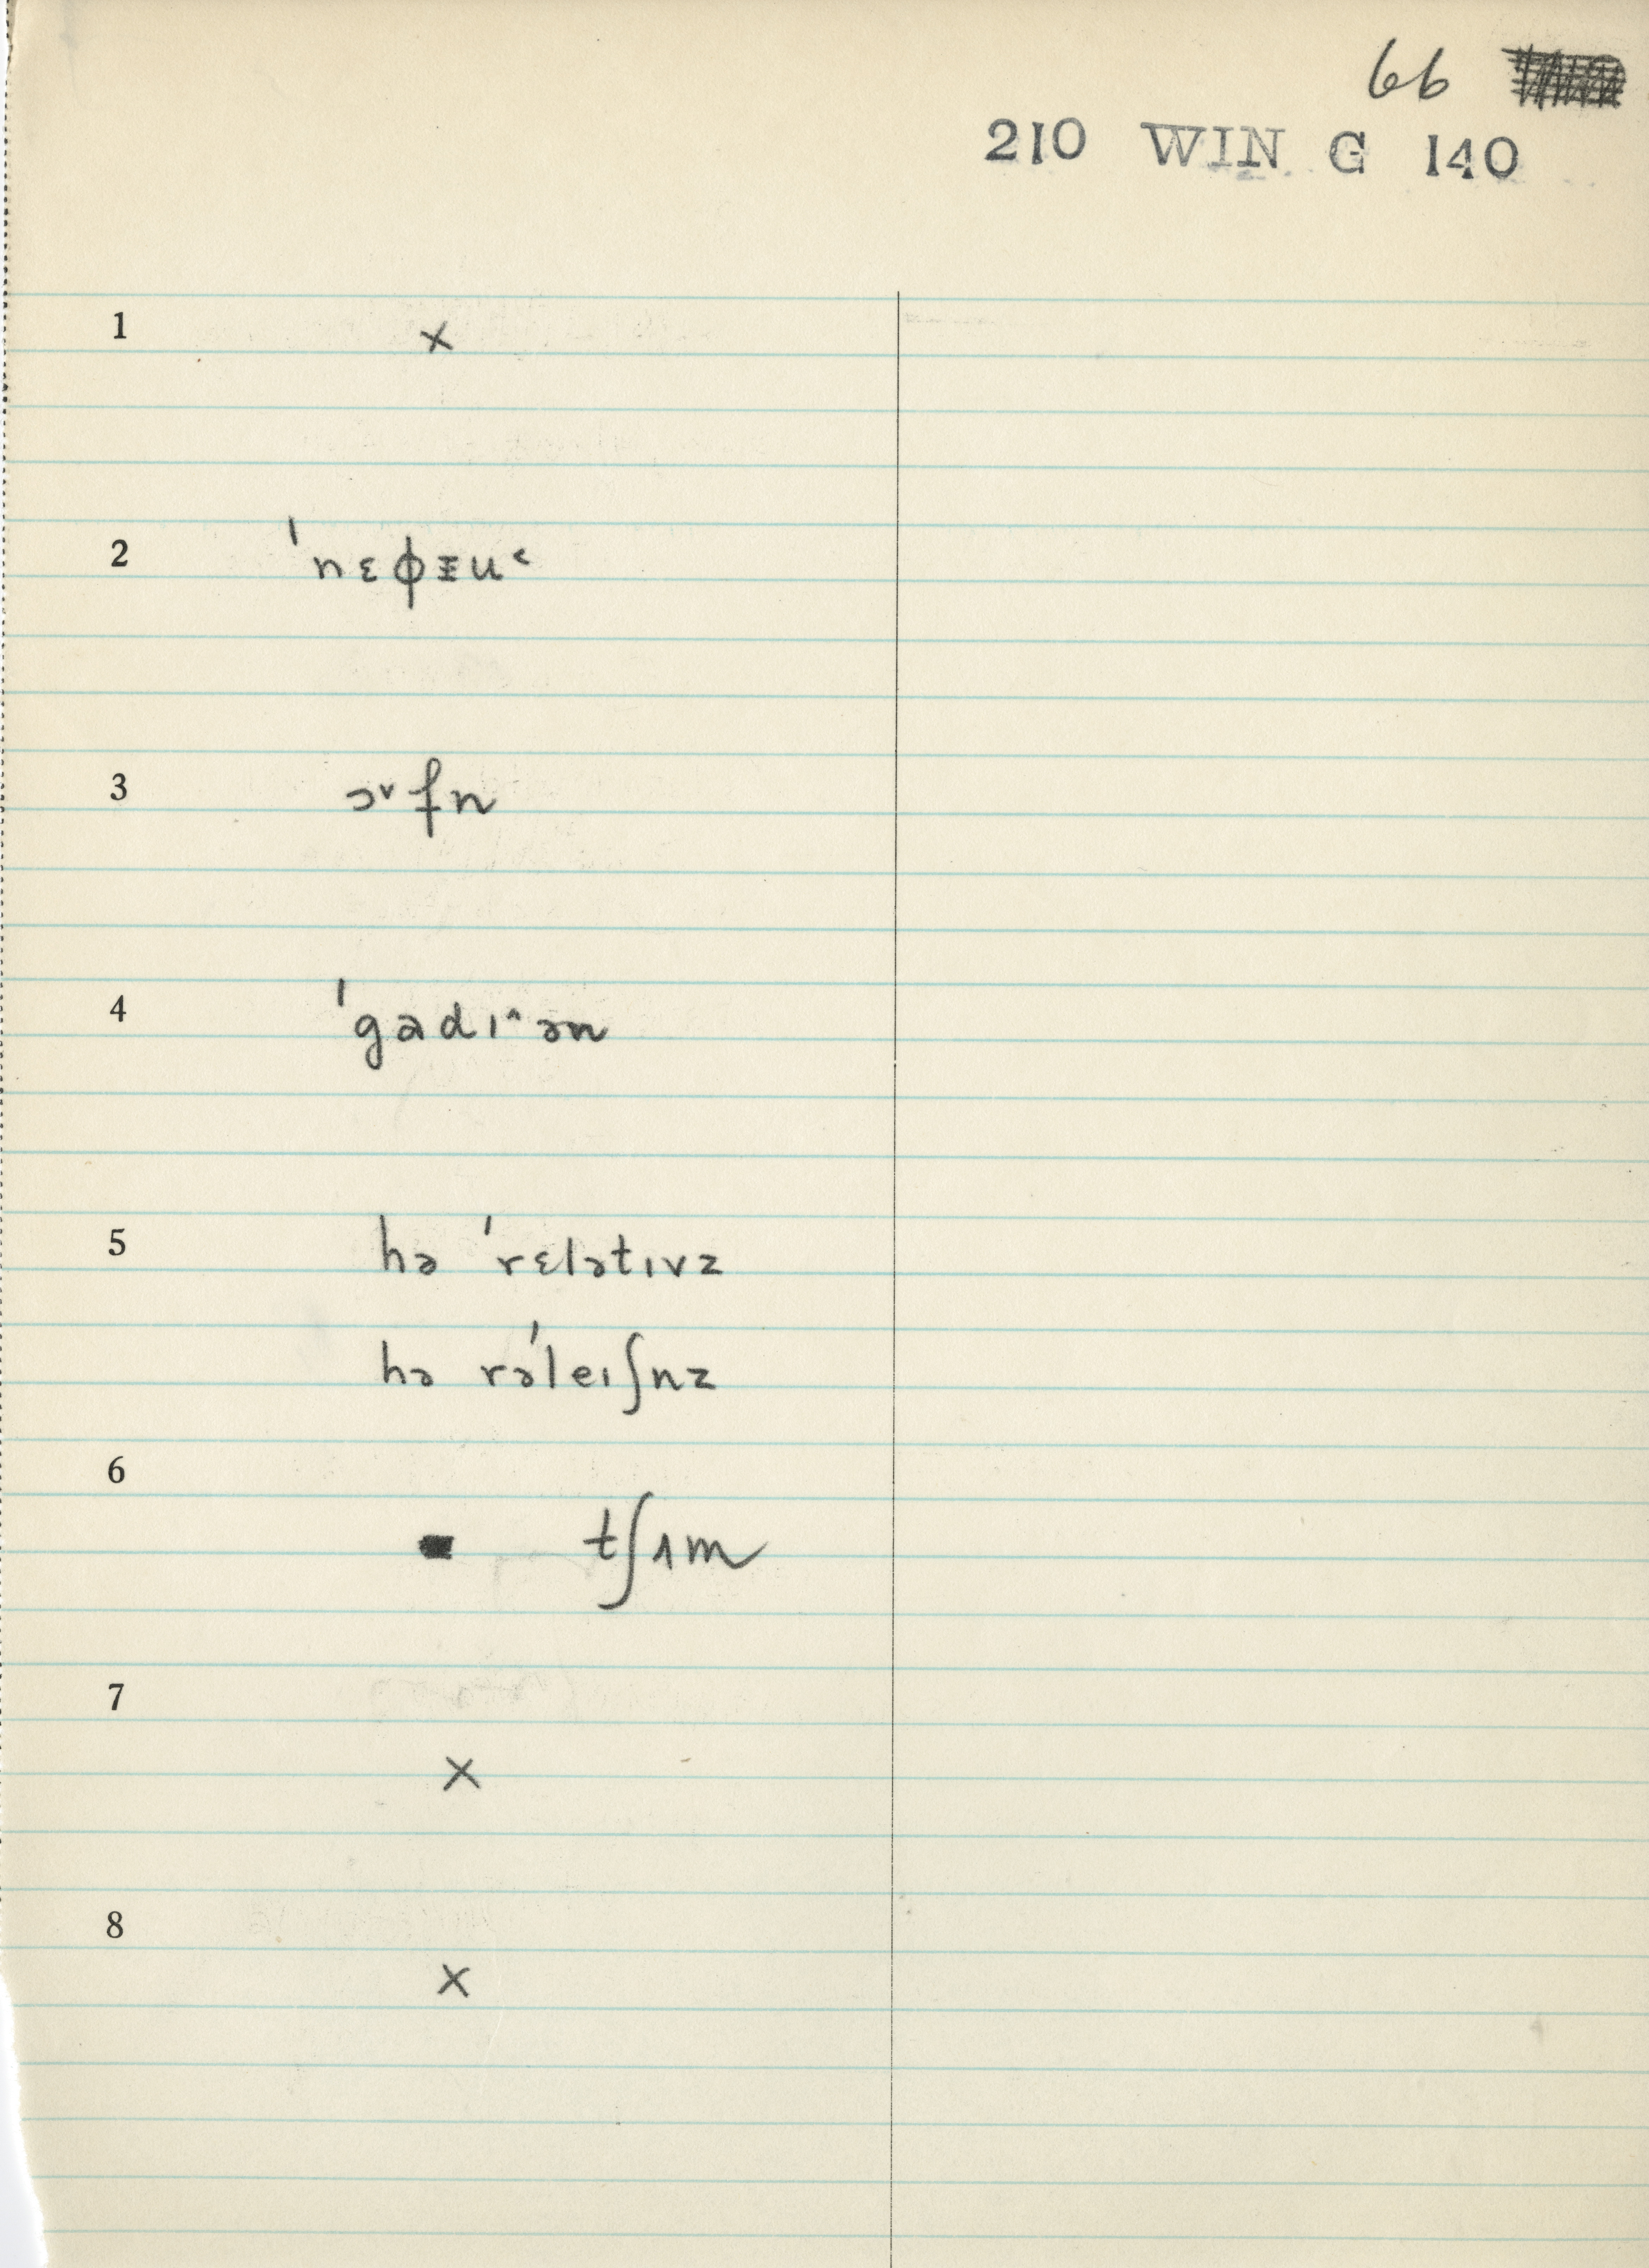 66
210 WIN G 140
1 ×
2 ˈnɛɸɪu˂
3 ɔ˅fn
4 ˈgadɪ˄ən
5 hə ˈrɛlətɪvz
hə rəˈleɪʃnz
6
tʃʌm
7
×
8
×